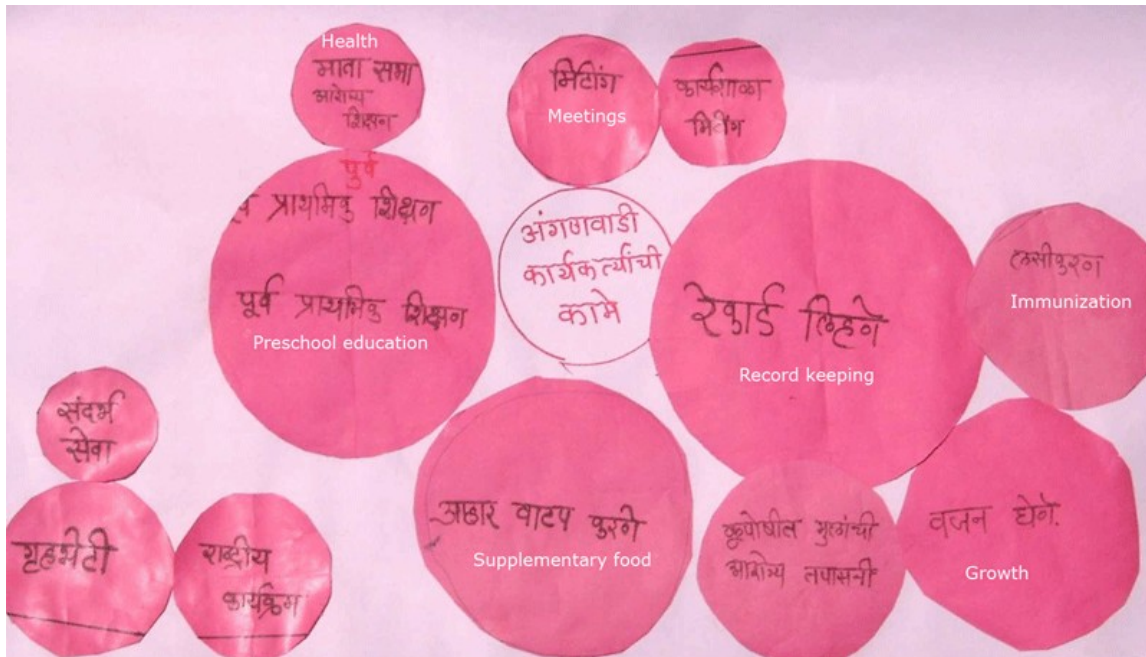 Health
माता सभा
आरोग्य
शिक्षन
मिटींग
Meetings
कार्यशाळा
मिटींग
पुर्व
र्व प्राथमिक शिक्षन
पूर्व प्राथमिक शिक्षन
Preschool education
अंगणवाडी
कार्यकर्त्यांची
कामे
रेकार्ड लिहने
Record keeping
लसीकरण
Immunization
संदर्भ
सेवा
गृहभेटी
राष्ट्रीय
कार्यक्रम
आहार वाटप करने
Supplementary food
कूपोषील मुलांची
आरोग्य तपासनी
वजन घेने.
Growth